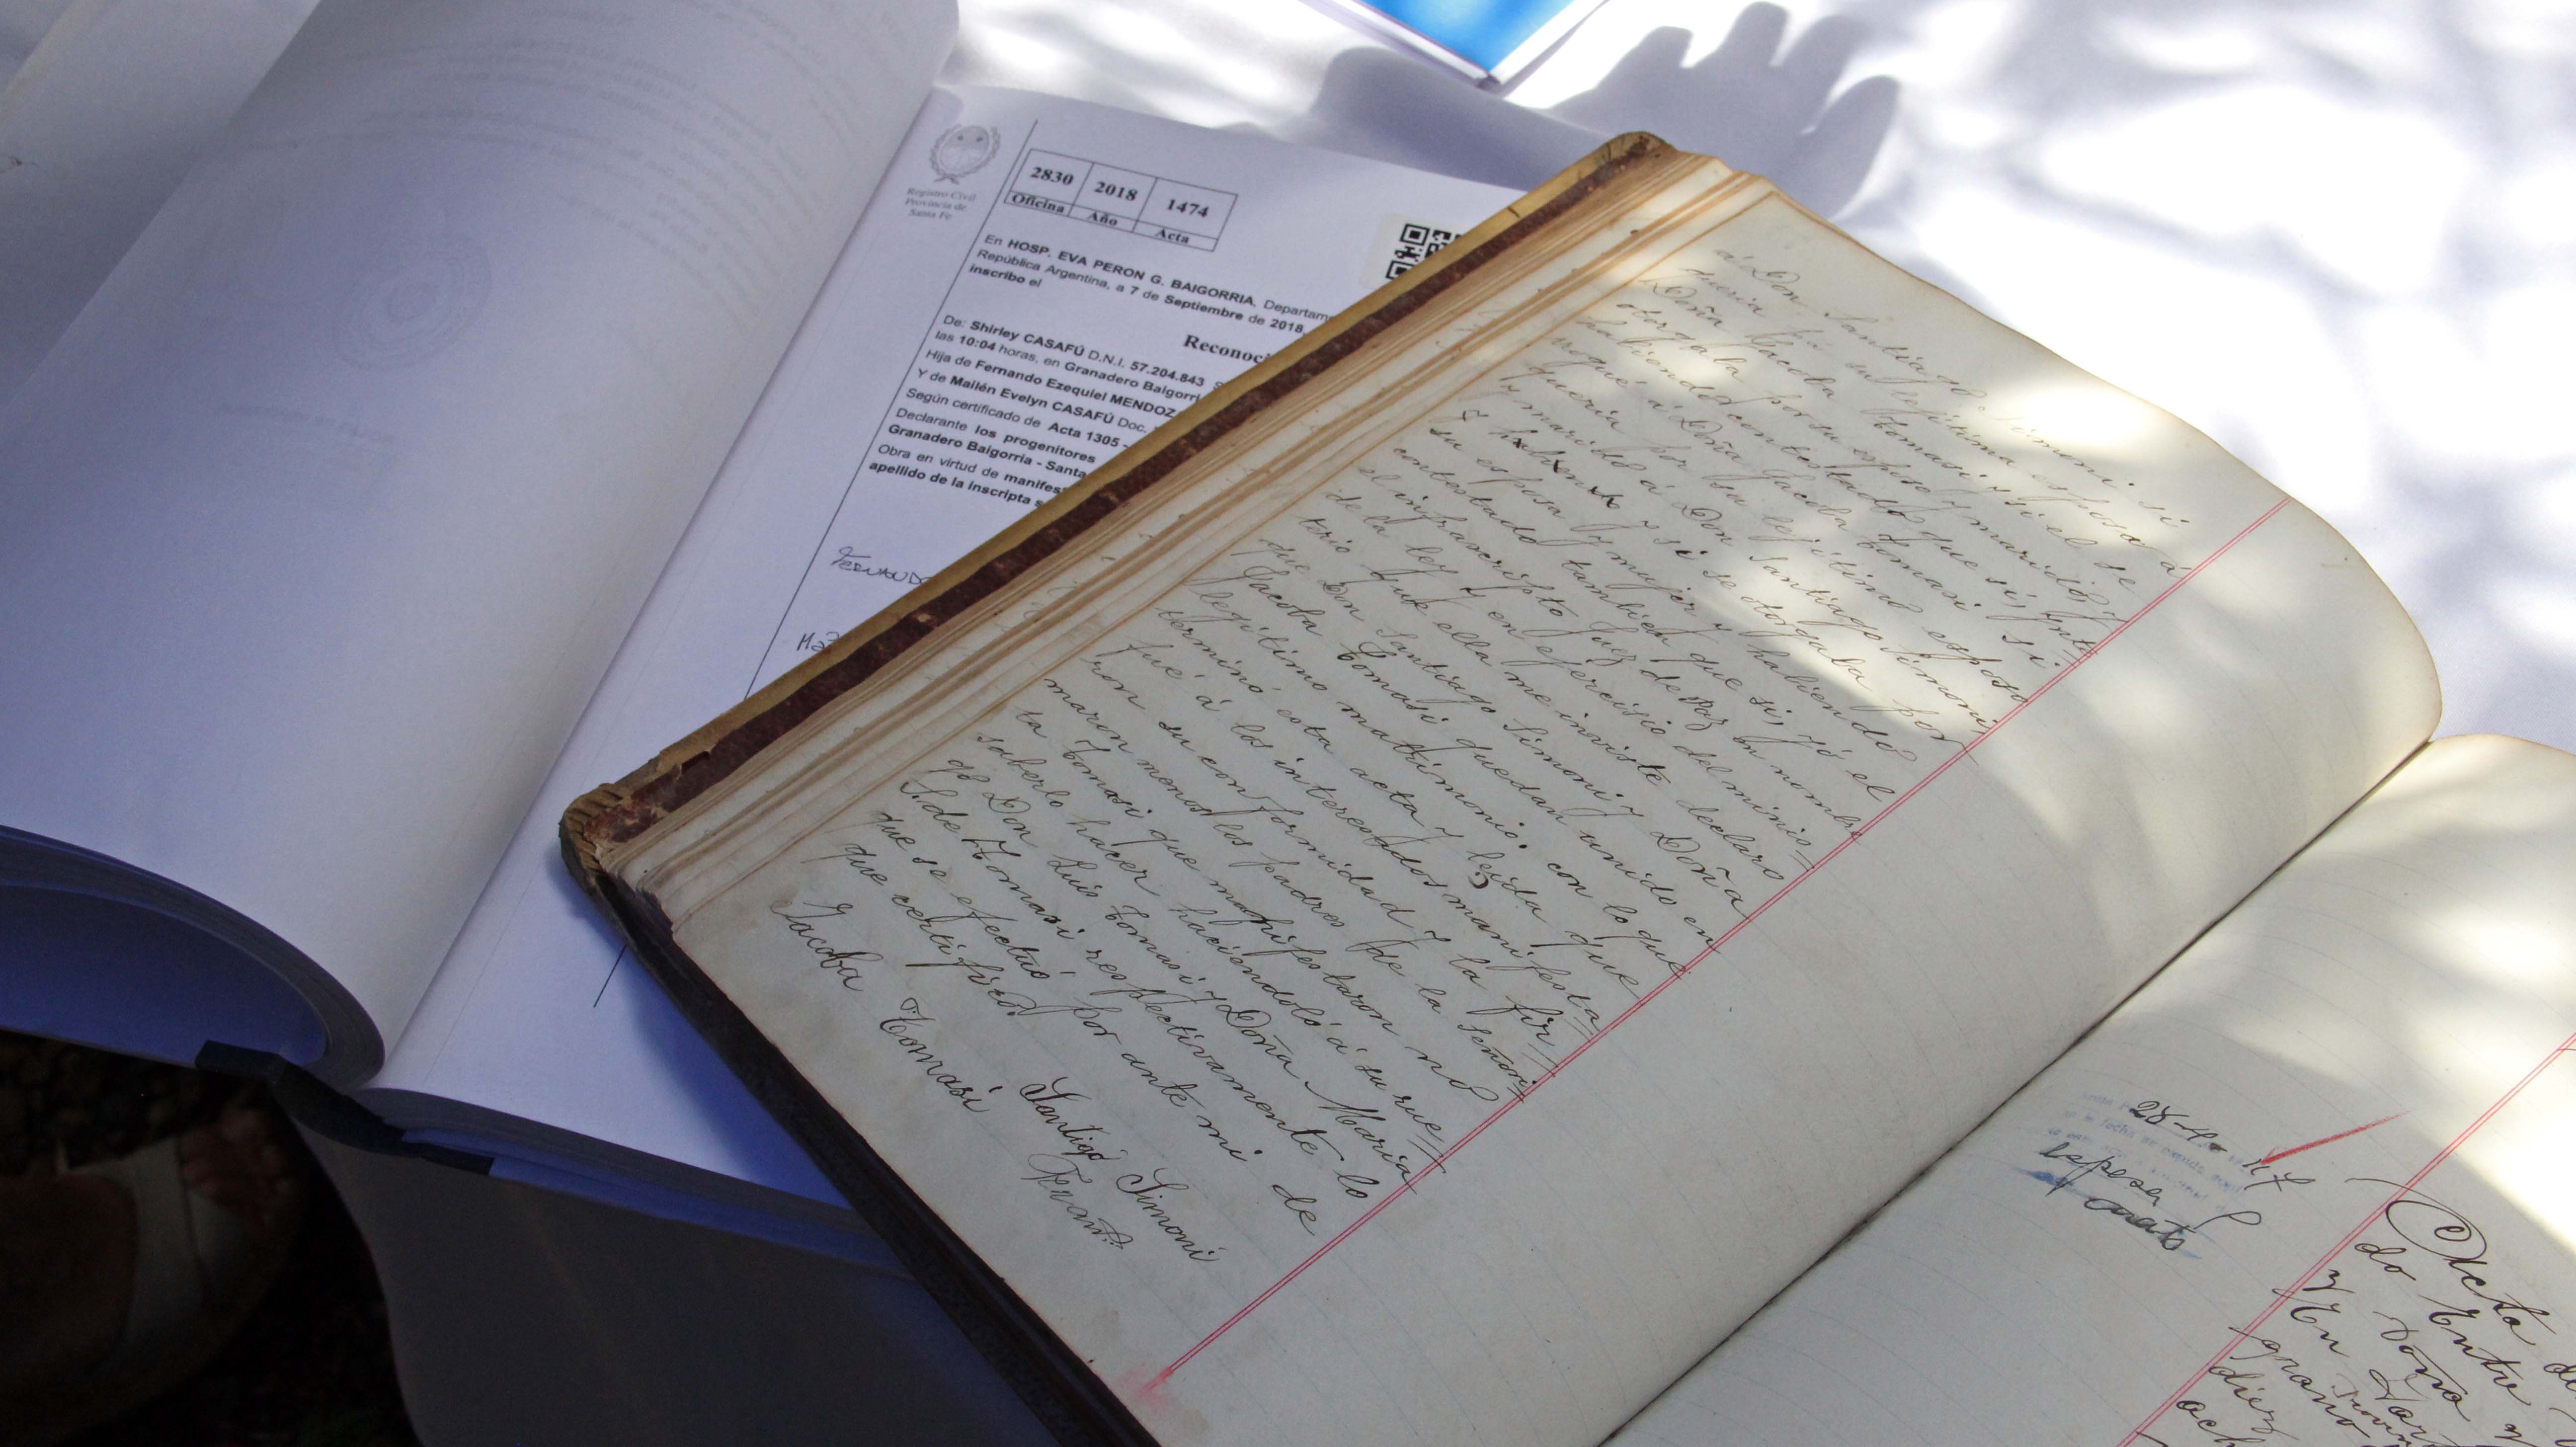 Registro Civil
Provincia de
Santa Fe
2830 2018 1474
Oficina Año Acta
En HOSP. EVA PERON G. BAIGORRIA, Departam
República Argentina, a 7 de Septiembre de 2018
inscribo el
Reconoci
De: Shirley CASAFÚ D.N.I. 57.204.843
las 10:04 horas, en Granadero Baigorri
Hija de Fernando Ezequiel MENDOZ
Y de Mailén Evelyn CASAFÚ Doc.
Según certificado de Acta 1305 -
Declarante los progenitores
Granadero Baigorria - Santa
Obra en virtud de manifes
apellido de la inscripta s
FERNANDO
á Don Santiago Simoni si
queria por su lejítima esposa á
Doña Jacoba Tomasi y si el se
otorgaba por su esposo y marido, y
habiendo contestado que si, pnto
rogué á Doña Jacoba Tomasi si
queria por su lejitimo esposo
y marido á Don Santiago Simoni,
y si se otorgaba por
su esposa y mujer y habiendo
contestado tambien que si, yó el
el infrascripto Juez de Paz en nombre
de la ley y en ejercisio del minis-
terio que ella me inviste declaro
que Don Santiago Simoni y Doña
Jacoba Tomasi quedan unido en
legítimo matrimonio. con lo que
terminó esta acta y leida que
fué á los interesados manifesta-
ron su conformidad y la fir-
maron menos los padres de la señori-
ta Tomasi que manifestaron no
saberlo hacer haciendolo á su rue-
go Don Luis Tomasi y Doña Maria
S. de Tomasi respectivamente lo
que se efectuó por ante mi de
que certifico.
Santigo Simoni
Jacoba Tomasi
28-4-
Acta de
do Entre
y Doña
En
diez
och